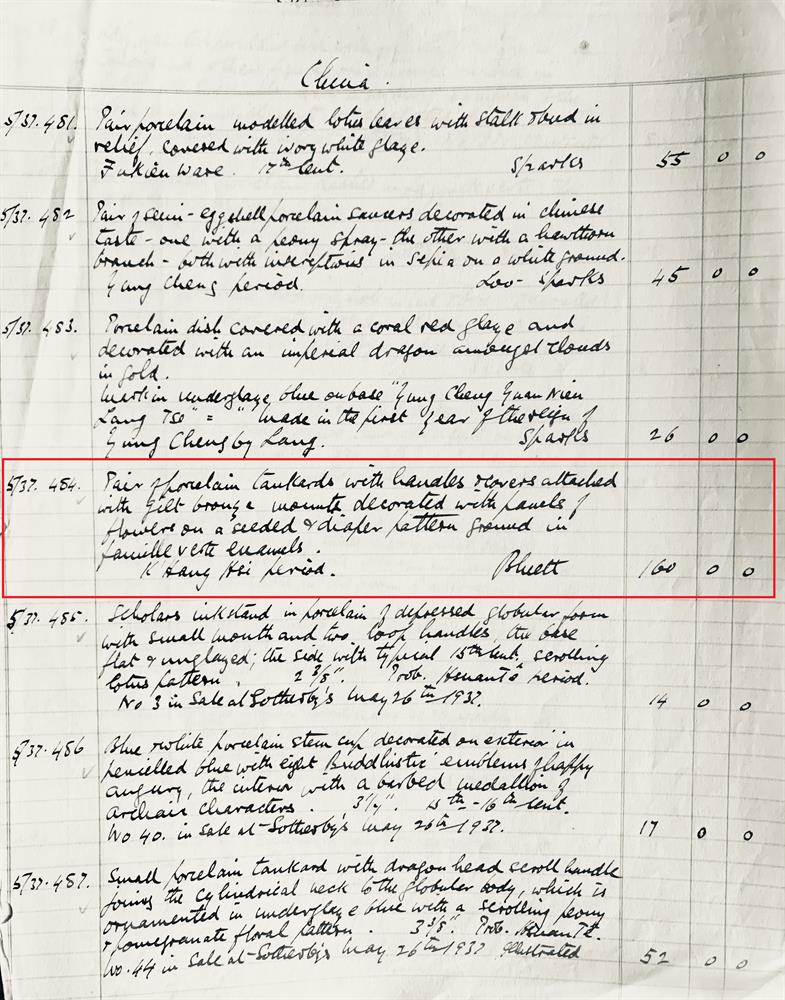 China.
5/37. 481. Pair porcelain modelled lotus leaves with stalk & bud in
relief, covered with ivory white glaze.
Fukien Ware. 17th Cent. Sparks 55 0 0
5/37. 482 Pair of semi-eggshell porcelain saucers decorated in chinese
taste - one with a peony spray - the other with a hawthorn
branch - both with inscriptions in sepia on a white ground.
Yung Cheng period. Loo - Sparks 45 0 0
5/37. 483. Porcelain dish covered with a coral red glaze and
decorated with an imperial dragon amongst clouds
in gold.
Mark in underglaze blue on base "Yung Cheng Yuan Nien
Lang Tse" = "made in the first year of the reign of
Yung Cheng by Lang. Sparks 26 0 0
5/37. 484. Pair of porcelain tankards with handles & covers attached
with gilt bronze mounts decorated with panels of
flowers on a seeded & diaper pattern ground in
famille verte enamels.
K'Hang Hsi period. Bluett 160 0 0
5/37. 485. Scholars inkstand in porcelain of depressed globular form
with small mouth and two loop handles, the base
flat & unglazed; the side with typical 15th cent. scrolling
lotus pattern. 2 3/8". Prob. Hsuan Tê period.
No 3 in Sale at Sotheby's May 26th 1937. 14 0 0
5/37. 486 Blue & white porcelain stem cup decorated on exterior in
pencilled blue with eight Buddhistic emblems of happy
augury, the interior with a barbed medallion of
archaic characters. 3 1/4". 15th-16th Cent.
No 40. in Sale at Sotheby's May 26th 1937. 17 0 0
5/37. 487. Small porcelain tankard with dragon head scroll handle
joining the cylindrical neck to the globular body, which is
ornamented in underglaze blue with a scrolling peony
& pomegranate floral pattern. 3 3/8". Prob. Hsuan Tê.
No. 44 in Sale at Sotheby's May 26th 1937 Illustrated 52 0 0